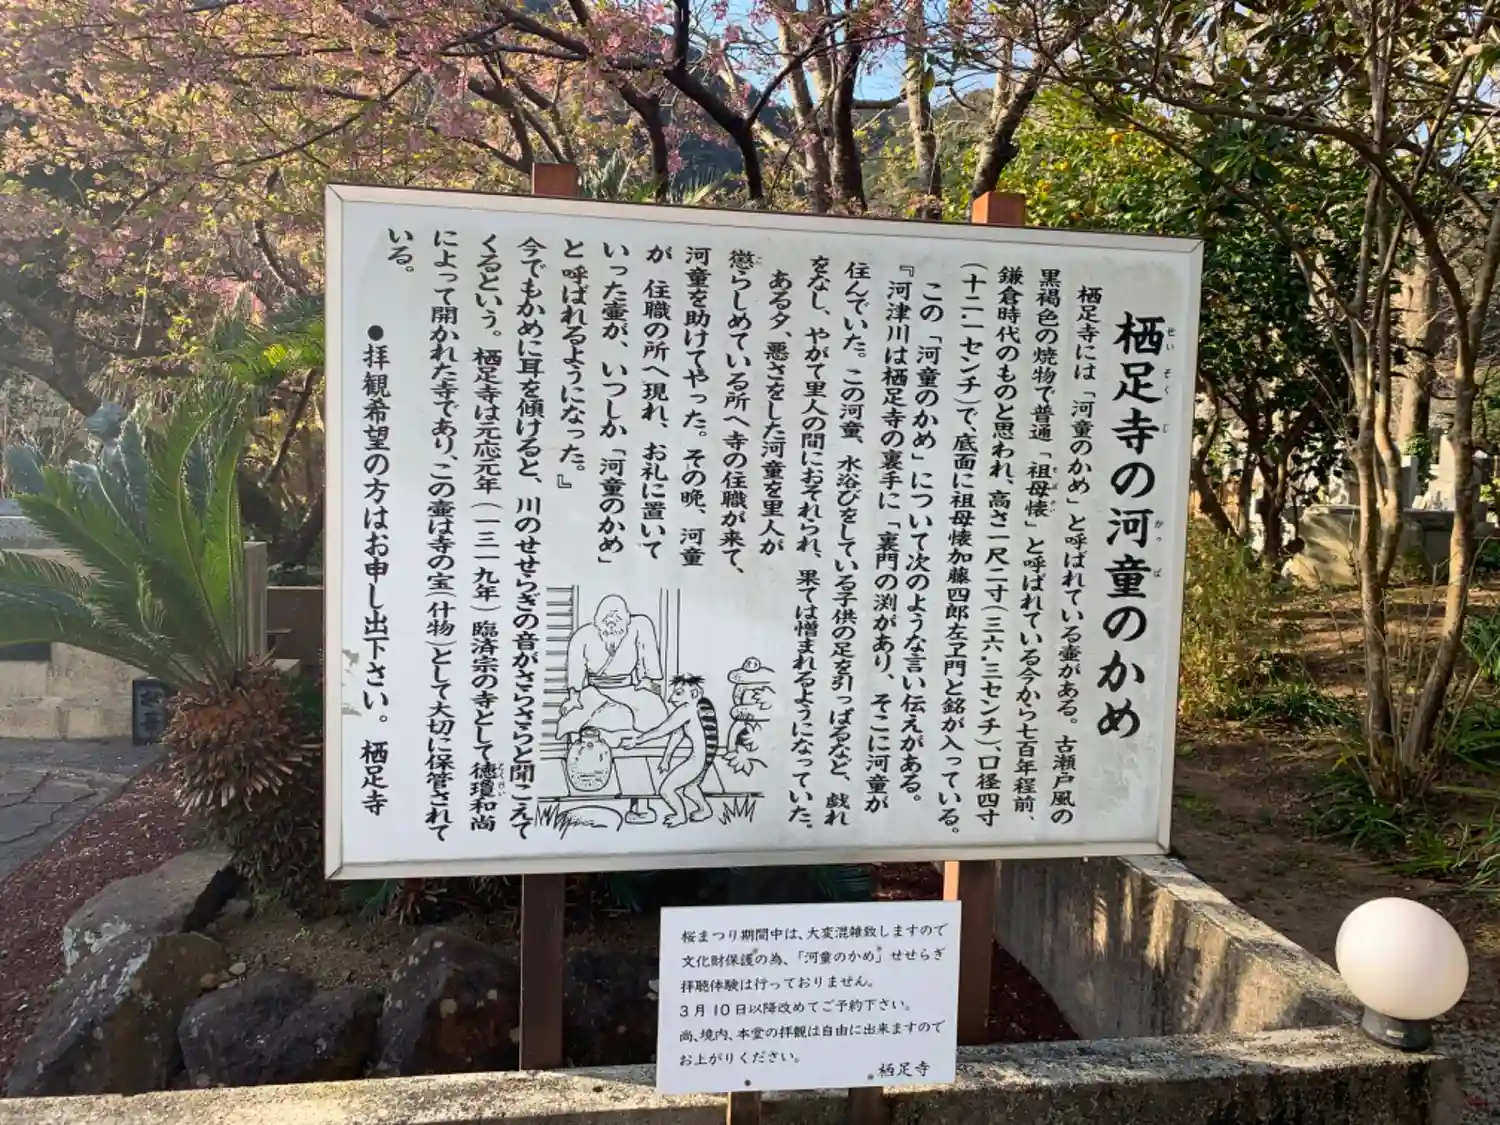 栖足寺の河童のかめ
せいそくじ
かっぱ
栖足寺には「河童のかめ」と呼ばれている壷がある。古瀬戸風の
黒褐色の焼物で普通「祖母懐」と呼ばれている今から七百年程前、
鎌倉時代のものと思われ、高さ一尺二寸(三六・三センチ)、口径四寸
(十二・一センチ)で、底面に祖母懐加藤四郎左ヱ門と銘が入っている。
この「河童のかめ」について次のような言い伝えがある。
『河津川は栖足寺の裏手に「裏門の渕があり、そこに河童が
住んでいた。この河童、水浴びをしている子供の足を引っぱるなど、戯れ
をなし、やがて里人の間におそれられ、果ては憎まれるようになっていた。
ある夕、悪さをした河童を里人が
懲らしめている所へ寺の住職が来て、
河童を助けてやった。その晩、河童
が 住職の所へ現れ、お礼に置いて
いった壷が、いつしか「河童のかめ」
と呼ばれるようになった。』
今でもかめに耳を傾けると、川のせせらぎの音がさらさらと聞こえて
くるという。栖足寺は元応元年(一三一九年)臨済宗の寺として徳瓊和尚
によって開かれた寺であり、この壷は寺の宝(什物)として大切に保管されて
いる。
●拝観希望の方はお申し出下さい。 栖足寺
桜まつり期間中は、大変混雑致しますので
文化財保護の為、「河童のかめ」せせらぎ
拝聴体験は行っておりません。
3月10日以降改めてご予約下さい。
尚、境内、本堂の拝観は自由に出来ますので
お上がりください。
栖足寺